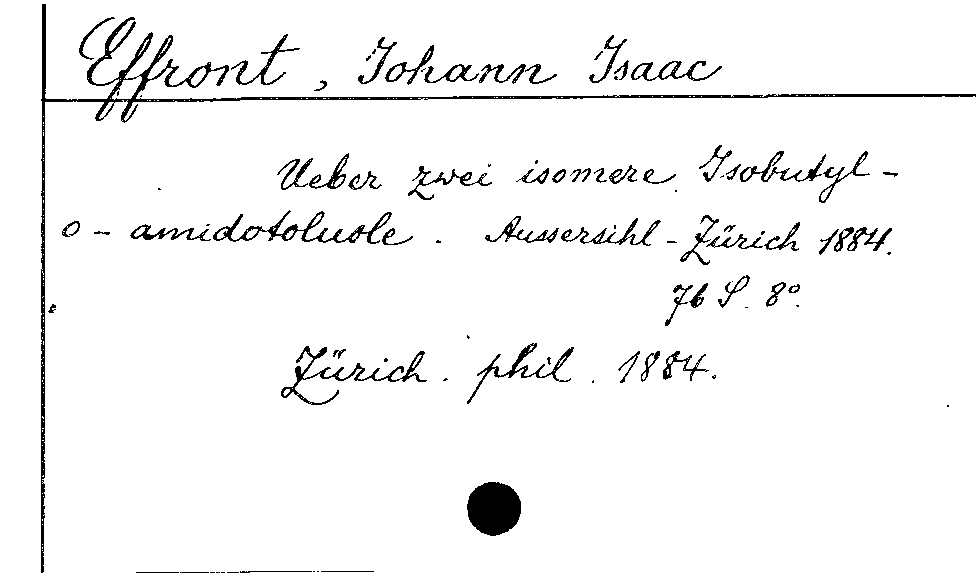 Effront, Johann Isaac
Ueber zwei isomere Isobutyl-
o-amidotoluole. Aussersihl-Zürich 1884.
76 S. 8°.
Zürich. phil. 1884.